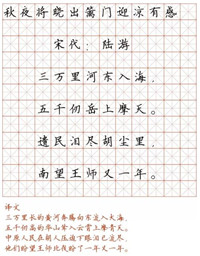 秋夜将晓出篱门迎凉有感
宋代：陆游
三万里河东入海，
五千仞岳上摩天。
遗民泪尽胡尘里，
南望王师又一年。
译文
三万里长的黄河奔腾向东流入大海，
五千仞高的华山耸入云霄上摩青天。
中原人民在胡人压迫下眼泪已流尽，
他们盼望王师北伐盼了一年又一年。